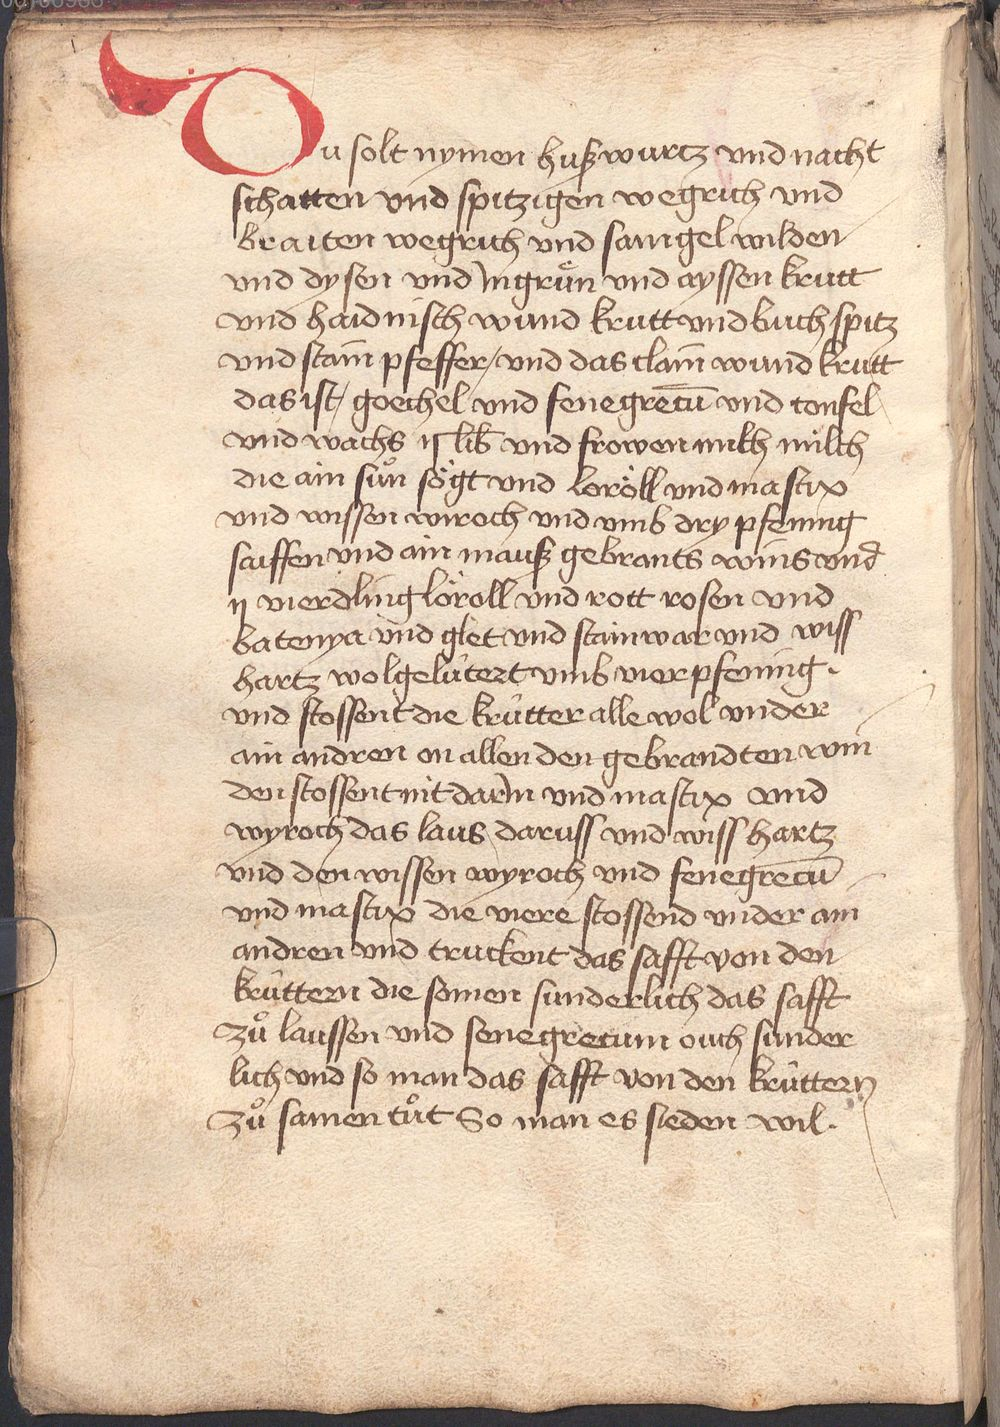 Du solt nymen hußwurtz vnd nacht
schatten vnd spitzigen wegrich vnd
braiten wegrich vnd sanigel wilden
vnd dysen vnd Ingruͤn vnd ayssen krutt
vnd haidnisch wund krutt vnd buch spitz
vnd stain pfeffer / vnd das clain wund krutt
das ist / goechel vnd fenegrecū vnd tonfel
vnd wachs ij lib vnd frowen milch milch
die ain suͦn soͤgt vnd loroͤll vnd mastix
vnd wissen wiroch vnd vmb dry pfening
saiffen vnd ain mauß gebrants wins vnd
ij vierdling loͤroll vnd rott rosen vnd
batenya vnd glet vnd stainwar vnd wiss
hartz wolgelútert vmb vier pfening .
vnd stossent die krútter alle wol vnder
ain andren on allen den gebrandten win
den stossent nit darin vnd mastix vnd
wyroch das laus daruss vnd wiss hartz
vnd den wissen wyroch vnd fenegrecū
vnd mastix die viere stossend vnder ain
andren vnd truckent das safft von den
krúttern die somen sunderlich das safft
zuͦ laussen vnd senegrecum ouch sunder
lich vnd so man das safft von den krúttern
zuͦ samen tuͦt So man es sieden wil .